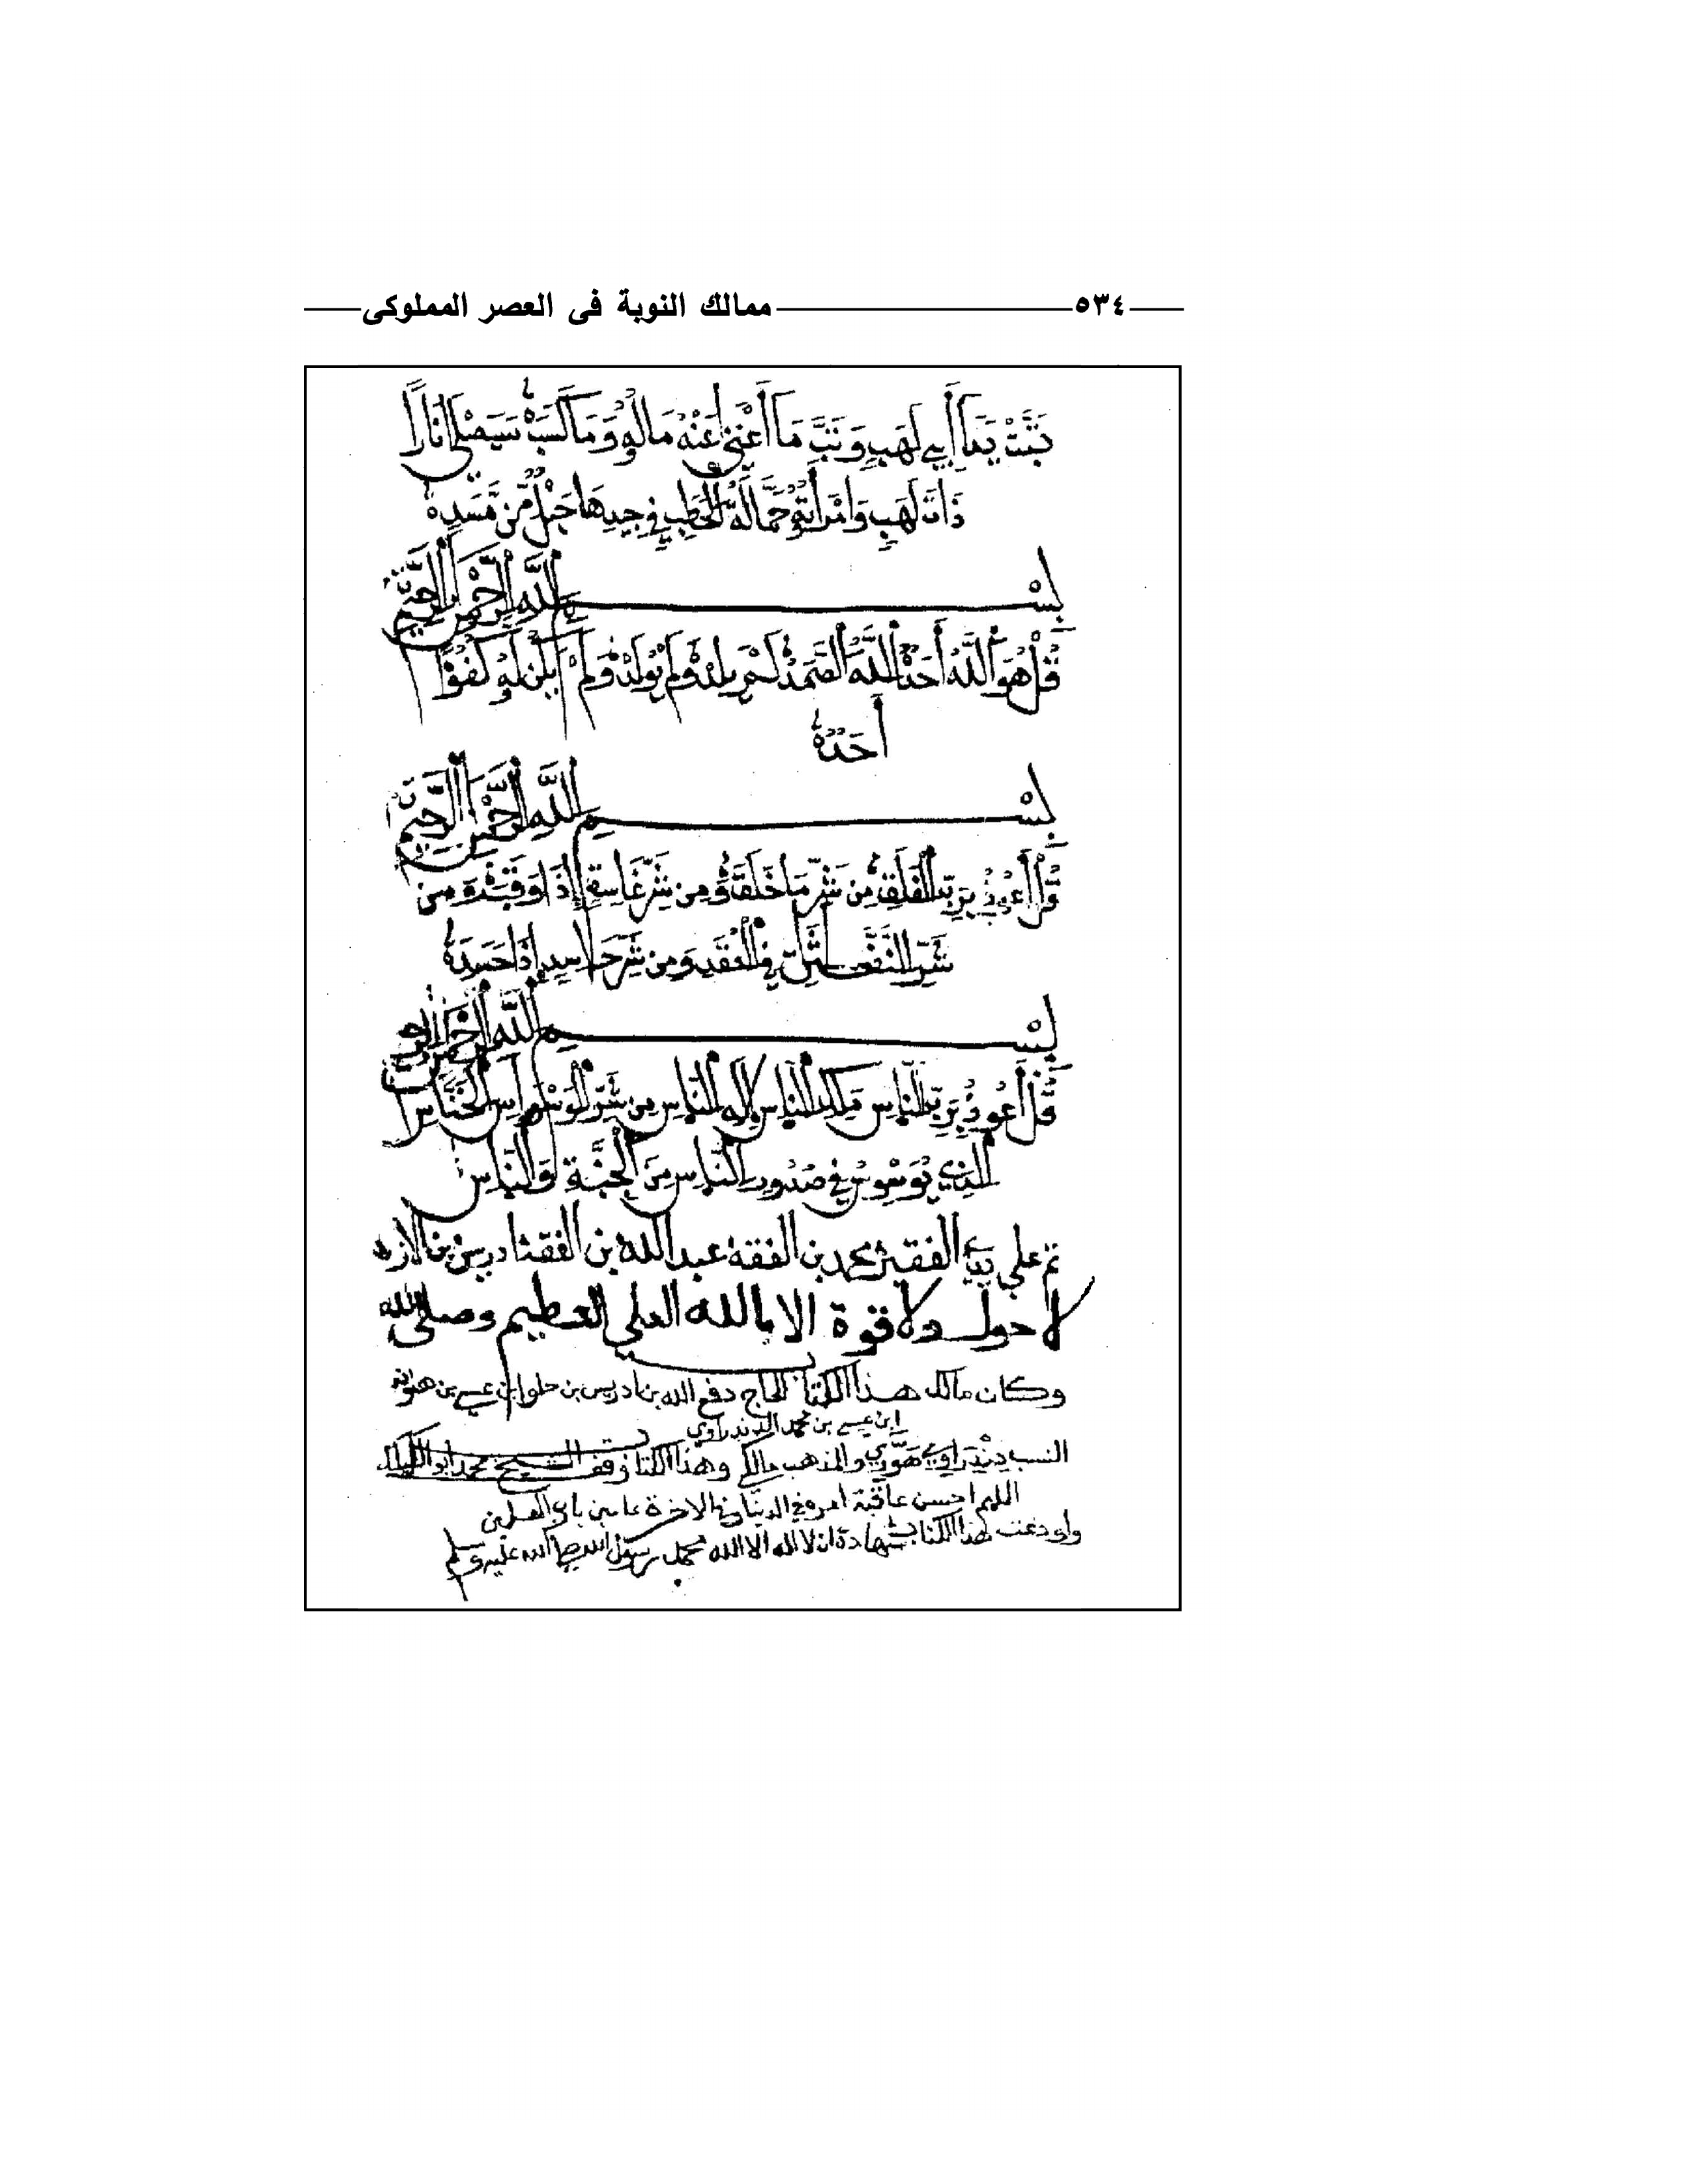 ٥٣٤ ممالك النوبة فى العصر المملوكى
تَبَّتْ يَدَا أَبِي لَهَبٍ وَتَبَّ مَا أَغْنَى عَنْهُ مَالُهُ وَمَا كَسَبَ سَيَصْلَى نَارًا
ذَاتَ لَهَبٍ وَامْرَأَتُهُ حَمَّالَةُ الْحَطَبِ فِي جِيدِهَا حَبْلٌ مِّن مَّسَدٍ
بِسْمِ اللَّهِ الرَّحْمَنِ الرَّحِيمِ
قُلْ هُوَ اللَّهُ أَحَدٌ اللَّهُ الصَّمَدُ لَمْ يَلِدْ وَلَمْ يُولَدْ وَلَمْ يَكُن لَهُ كُفُوًا
أَحَدٌ
بِسْمِ اللَّهِ الرَّحْمَنِ الرَّحِيمِ
قُلْ أَعُوذُ بِرَبِّ الْفَلَقِ مِن شَرِّ مَا خَلَقَ وَمِن شَرِّ غَاسِقٍ إِذَا وَقَبَ وَمِن
شَرِّ النَّفَّثَتِ فِي الْعُقَدِ وَمِن شَرِّ حَاسِدٍ إِذَا حَسَدَ
بِسْمِ اللَّهِ الرَّحْمَنِ
قُلْ أَعُوذُ بِرَبِّ النَّاسِ مَلِكِ النَّاسِ إِلَهِ النَّاسِ مِن شَرِّ الْوَسْوَاسِ الْخَنَّاسِ
الَّذِي يُوَسْوِسُ فِي صُدُورِ النَّاسِ مِنَ الْجِنَّةِ وَالنَّاسِ
تم علي يدي الفقير محمد بن الفقه عبد الله بن الفقه ادريس بن
لا حول ولا قوة الا بالله العلي العظيم وصلى الله
وكان مالك هذا الكتاب الحاج دفع الله بن ادريس بن حلو ابن عيسى بن
ابن عيسى بن محمد الدندراوي
النسب دِنْدراوي هَوَّري والمذهب مالكي وهذا الكتاب وقف الشيخ محمد ابو
اللهم احسن عاقبة امره في الدنيا وفي الاخرة ءامين يا رب العلمين
واودعت هذا الكتاب شهادة ان لا اله الا الله محمد رسول الله صلى الله عليه وسلم